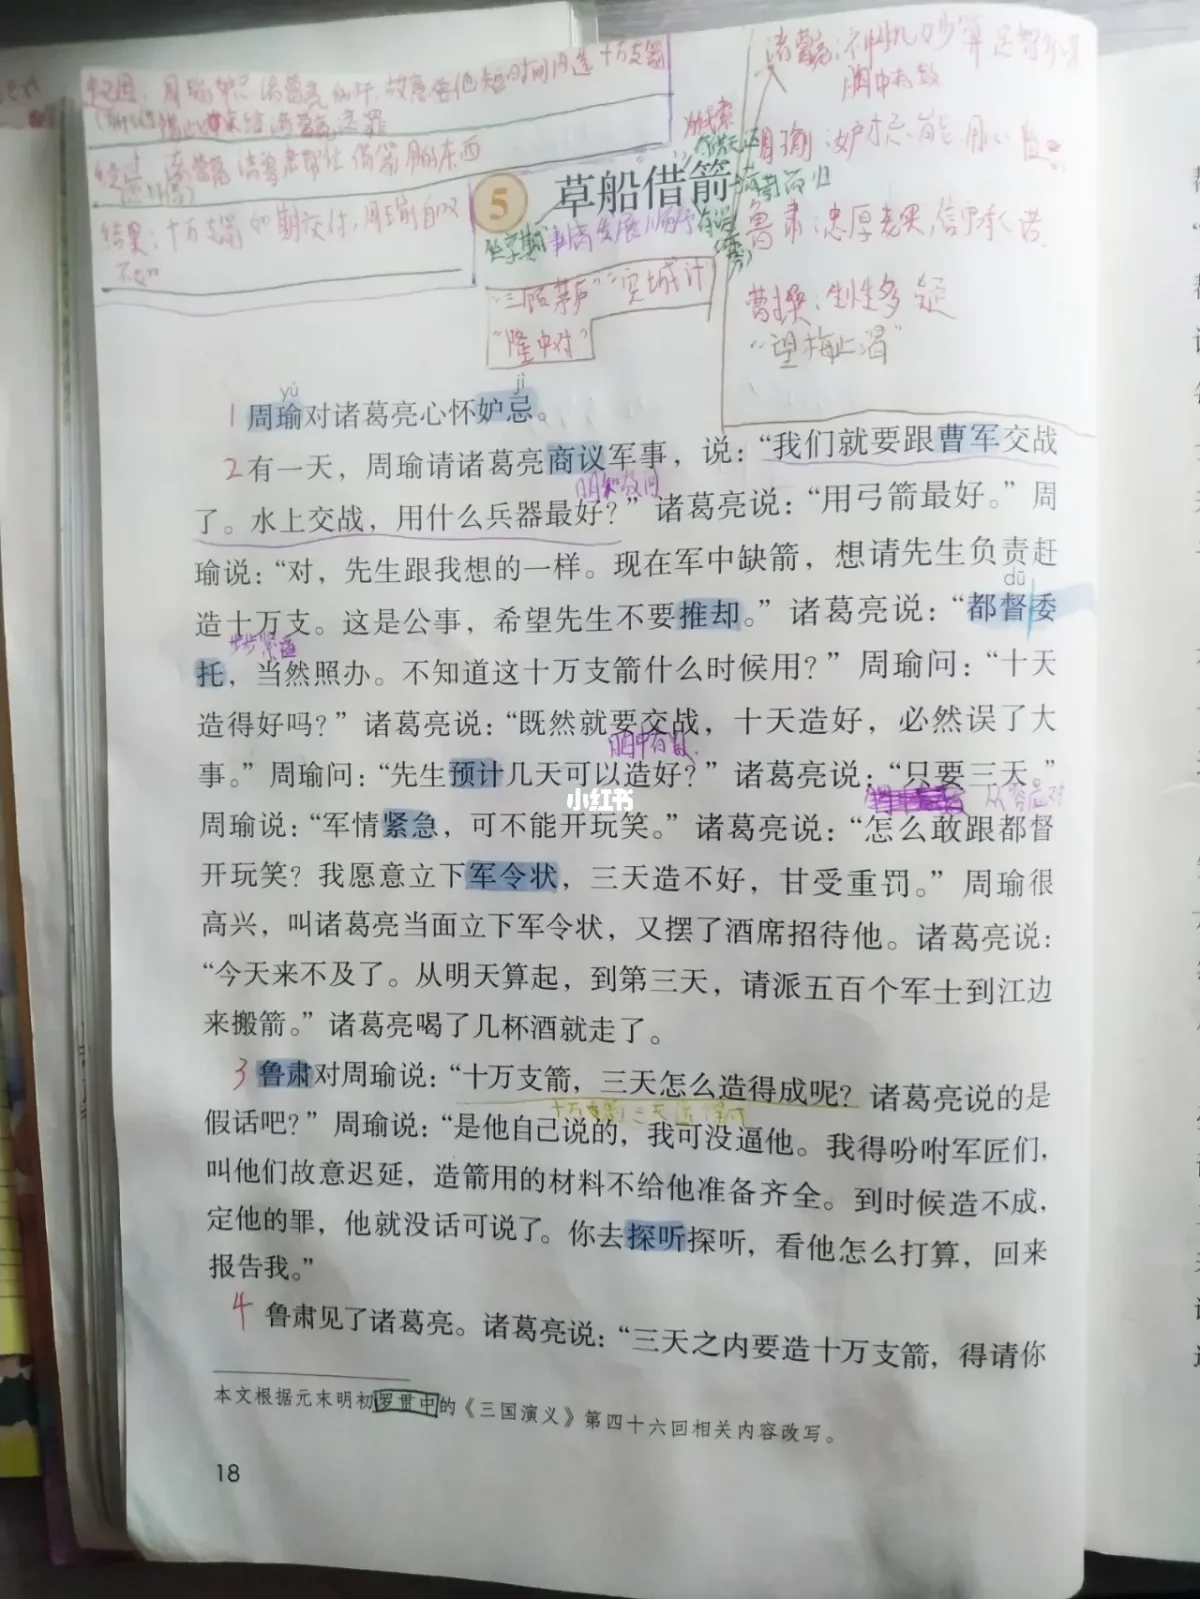 起因：周瑜妒忌诸葛亮的才，故意要他短时间内造十万支箭
经过：诸葛亮请鲁肃帮忙借箭用的东西
结果：十万支箭如期交付，周瑜自叹
不如
诸葛亮：神机妙算
胸中有数
周瑜：妒忌
鲁肃：忠厚老实，信守承诺
曹操：生性多疑
“望梅止渴”
为线索
5 草船借箭
事情发展顺序
“三顾茅庐”“空城计”
“隆中对”
yú jì
1 周瑜对诸葛亮心怀妒忌。
2 有一天，周瑜请诸葛亮商议军事，说：“我们就要跟曹军交战
明知故问
了。水上交战，用什么兵器最好？”诸葛亮说：“用弓箭最好。”周
瑜说：“对，先生跟我想的一样。现在军中缺箭，想请先生负责赶
dū
造十万支。这是公事，希望先生不要推却。”诸葛亮说：“都督委
步步紧逼
托，当然照办。不知道这十万支箭什么时候用？”周瑜问：“十天
造得好吗？”诸葛亮说：“既然就要交战，十天造好，必然误了大
胸中有数
事。”周瑜问：“先生预计几天可以造好？”诸葛亮说：“只要三天。”
小红书
从容应对
周瑜说：“军情紧急，可不能开玩笑。”诸葛亮说：“怎么敢跟都督
开玩笑？我愿意立下军令状，三天造不好，甘受重罚。”周瑜很
高兴，叫诸葛亮当面立下军令状，又摆了酒席招待他。诸葛亮说：
“今天来不及了。从明天算起，到第三天，请派五百个军士到江边
来搬箭。”诸葛亮喝了几杯酒就走了。
3 鲁肃对周瑜说：“十万支箭，三天怎么造得成呢？诸葛亮说的是
十万支箭三天造得成
假话吧？”周瑜说：“是他自己说的，我可没逼他。我得吩咐军匠们，
叫他们故意迟延，造箭用的材料不给他准备齐全。到时候造不成，
定他的罪，他就没话可说了。你去探听探听，看他怎么打算，回来
报告我。”
4 鲁肃见了诸葛亮。诸葛亮说：“三天之内要造十万支箭，得请你
本文根据元末明初罗贯中的《三国演义》第四十六回相关内容改写。
18